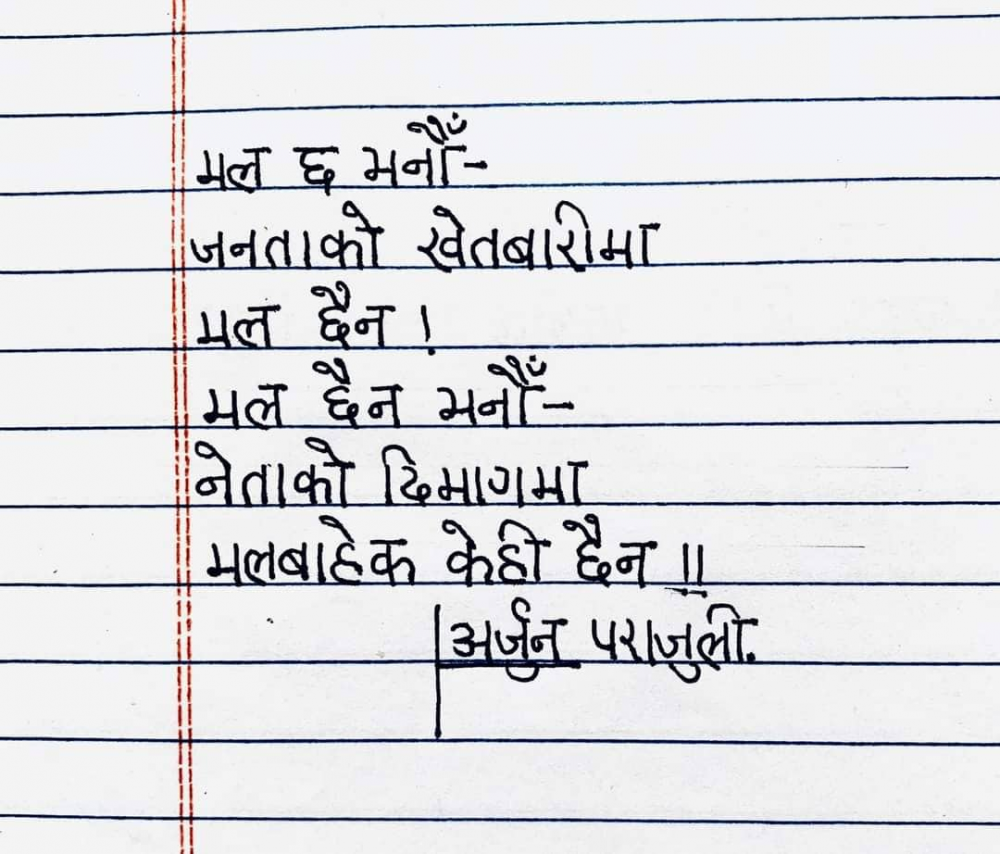 मल छ भनौँ-
जनताको खेतबारीमा
मल छैन !
मल छैन भनौँ-
नेताको दिमागमा
मलबाहेक केही छैन !!
अर्जुन पराजुली.